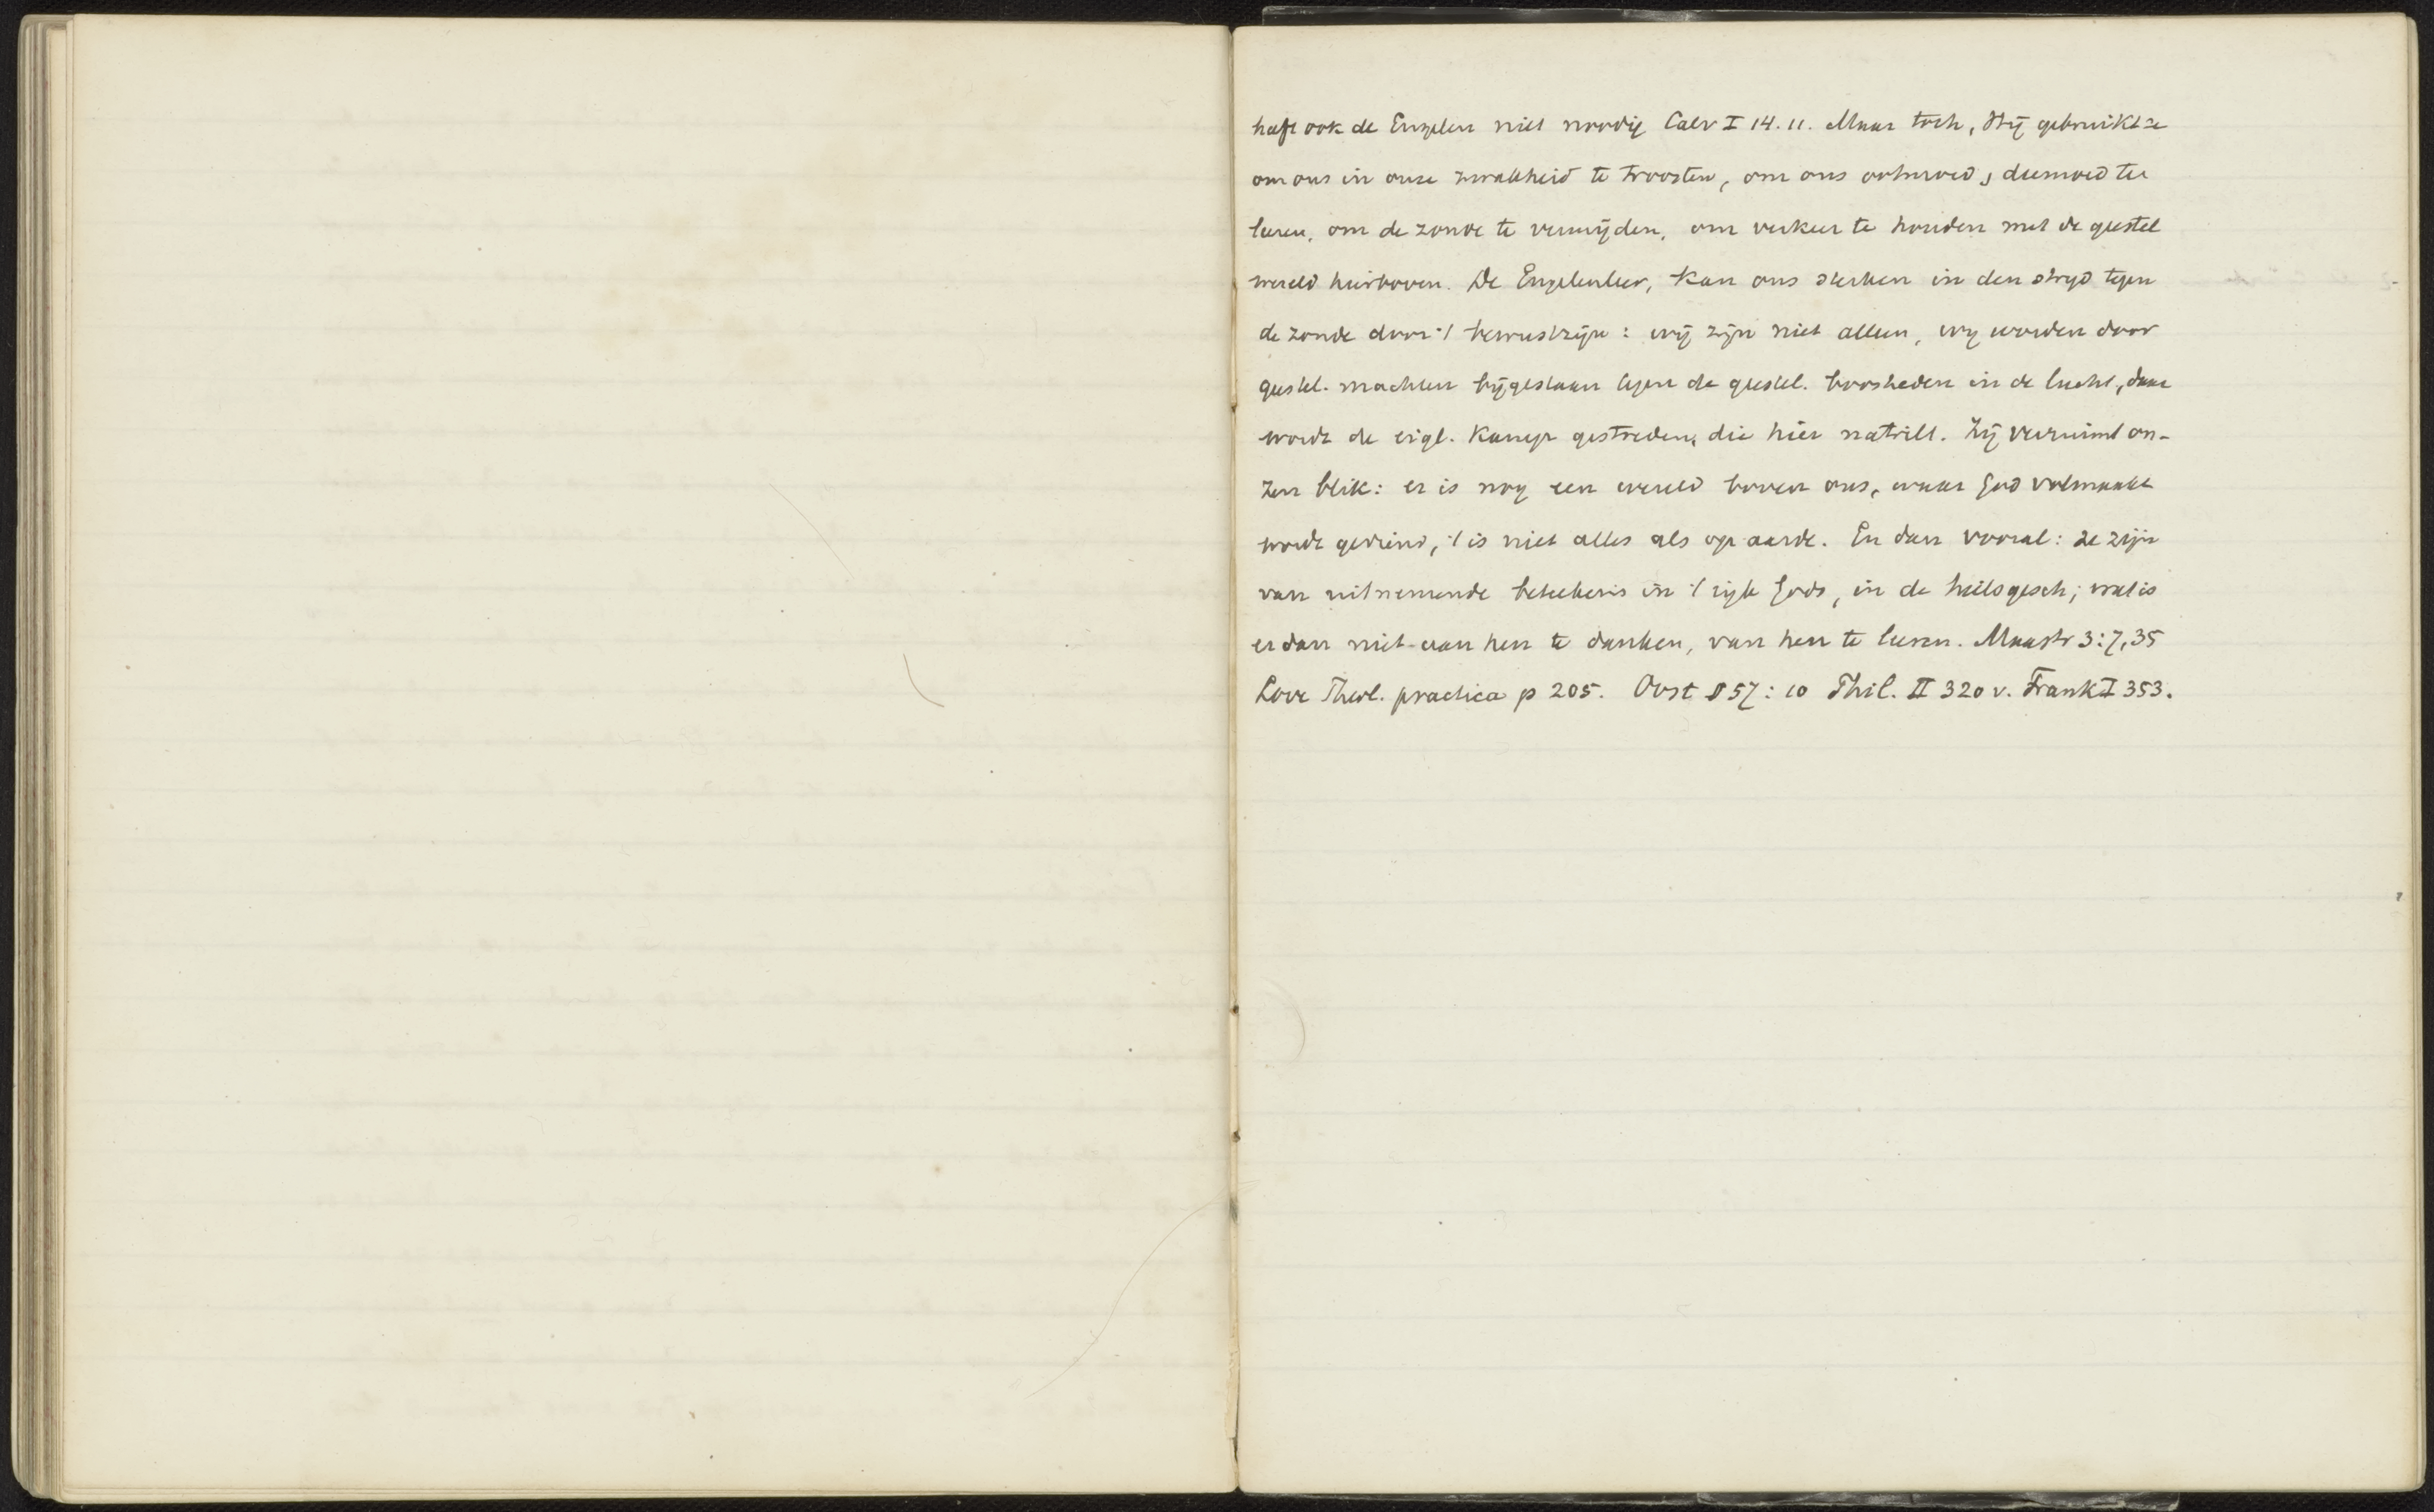 heeft ook de Engelen niet noodig Calv I 14. 11. Maar toch, Hij gebruikt ze
om ons in onze zwakheid te troosten, om ons ootmoed, deemoed te
leeren, om de zonde te vermijden, om verkeer te houden met de geestel
wereld hierboven. De Engelenleer, kan ons sterken in den strijd tegen
de zonde door 't bewustzijn: wij zijn niet alleen, wij worden door
geestel. machten bijgestaan tegen de geestel. boosheden in de lucht, daar
wordt de eigl. kamp gestreden, die hier natrilt. Zij verruimt on-
zen blik: er is nog een wereld boven ons, waar God volmaakt
wordt gediend, 't is niet alles als op aarde. En dan vooral: ze zijn
van uitnemende beteekenis in 't rijk Gods, in de heilsgesch; wat is
er dan niet aan hen te danken, van hen te leeren. Maastr 3:7,35
Love Theol. practica p 205. Oost § 57: 10 Phil. II 320 v. Frank I 353.